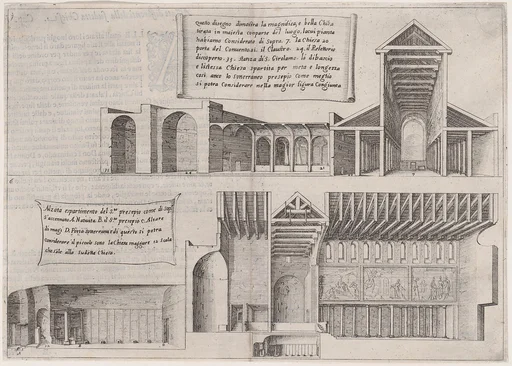 Questo disegno dimostra la magnifica, e bella Chiesa
tirata in maiesta conparte del luogo, la cui pianta
habiamo Considerato di Sopra. 7. la Chiesa 20
porta del Convento. 21. il Claustro. 29. il Refettorio
discoperto. 35. stanza di S. Girolamo. lo disbascio
e l'istessa Chiesa spartita per meta e longezza
cosi anco lo sonterraneo presepio come meglio
si potra Considerare nella magior figura Congiunta
Alzata e spartimento del S.mo presepio come di sopra
s'accennato. A. Nativita B. il S.mo presepio C. Altare
di magi D. Pozzo sonterraneo di questo si potra
considerare il picolo sotto la Chiesa maggiore la scala
che sale alla sudetta Chiesa.